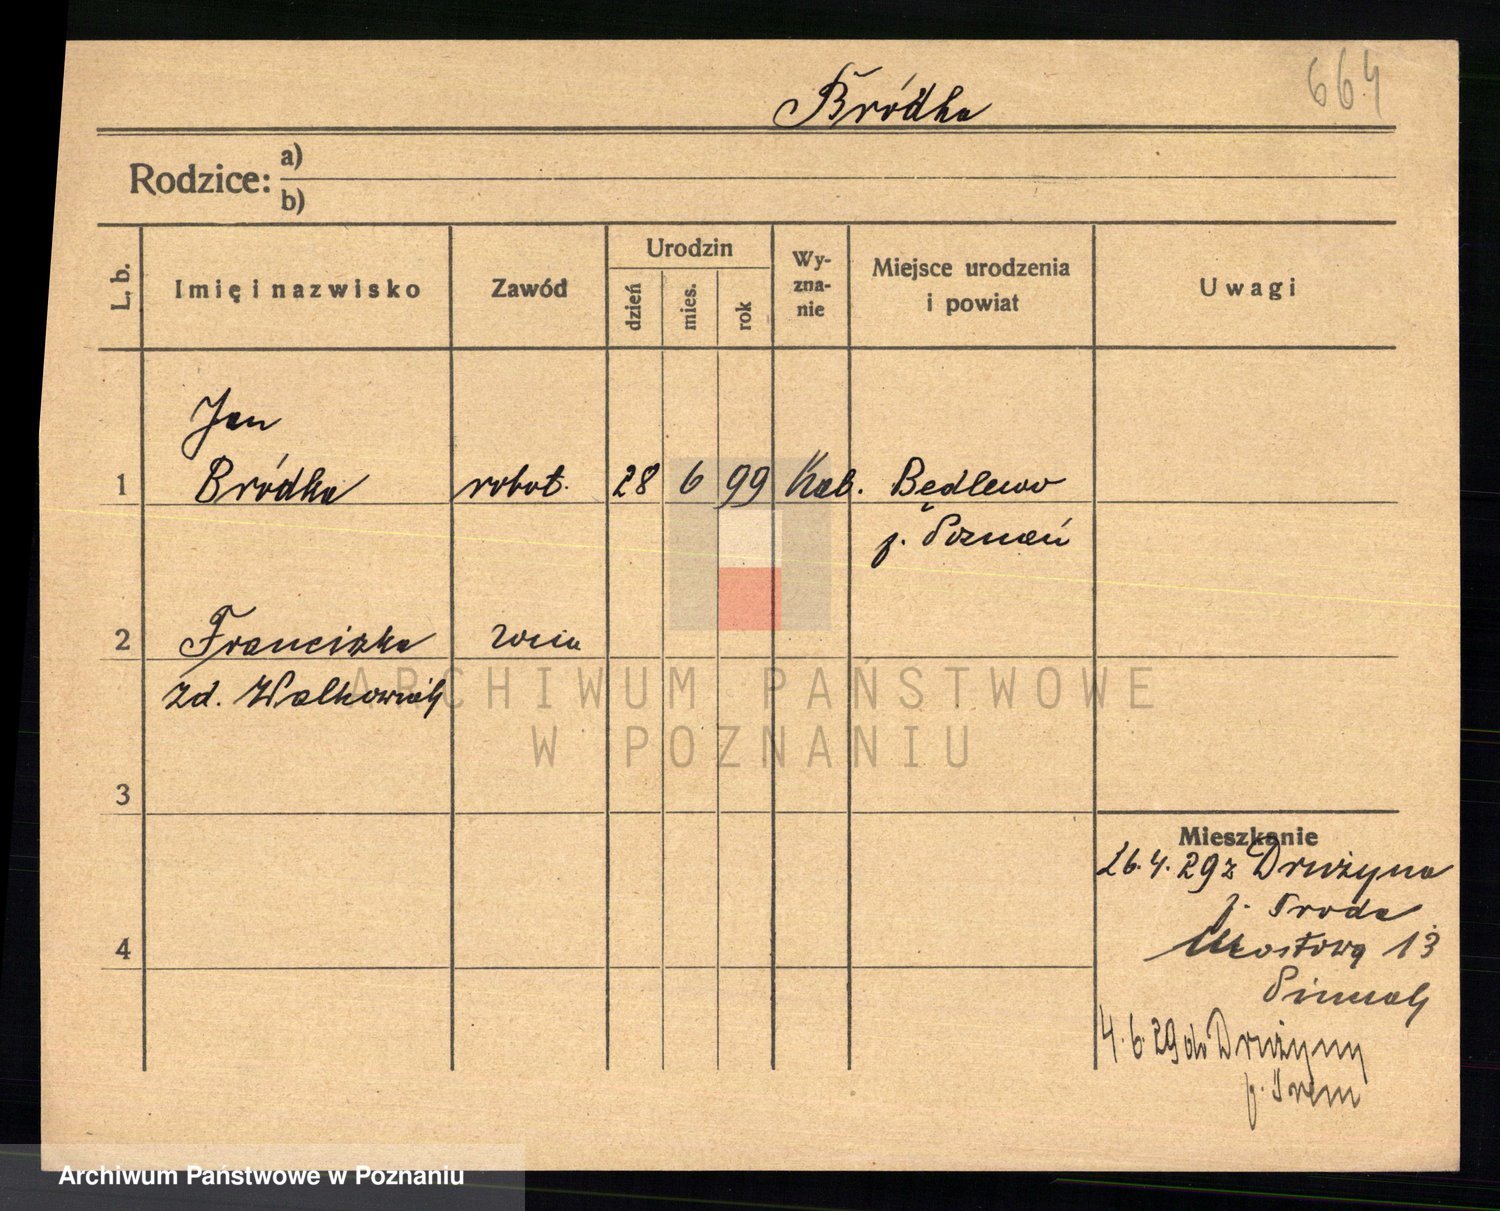 664
Bródka
Rodzice: a)
b)
L. b. Imię i nazwisko Zawód Urodzin dzień mies. rok Wy-zna-nie Miejsce urodzenia i powiat Uwagi
Jan
1 Bródka robot. 28 6 99 Kat. Będlewo
p. Poznań
2 Franciszka żona
zd. Walkowiak
ARCHIWUM PAŃSTWOWE
W POZNANIU
3
Mieszkanie
26.4.29 z Drużyna
p.
4 Mostowa 13
4.6.29 do Drużyny
p. Śrem
Archiwum Państwowe w Poznaniu